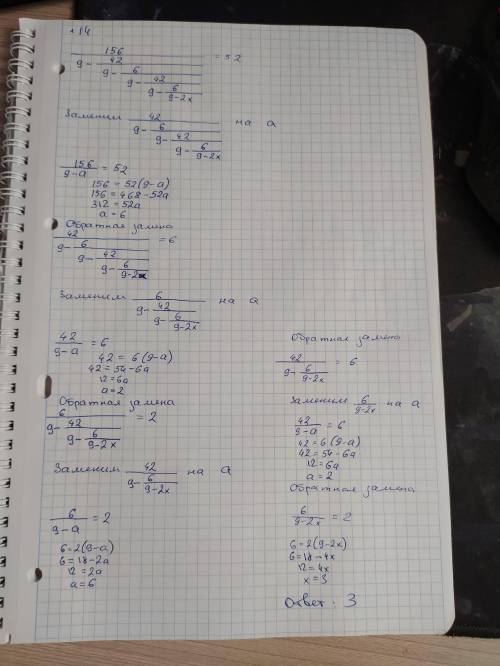 14
156
9 - 42
9 - 6
9 - 42
9 - 6
9-2x
= 52
Заменим
42
9 - 6
9 - 42
9 - 6
9-2x
на a
156
9-a
= 52
156 = 52(9-a)
156 = 468 - 52a
312 = 52a
a = 6
Обратная замена
42
9 - 6
9 - 42
9 - 6
9-2x
= 6
Заменим
6
9 - 42
9 - 6
9-2x
на a
42
9-a
= 6
42 = 6(9-a)
42 = 54 - 6a
12 = 6a
a = 2
Обратная замена
6
9 - 42
9 - 6
9-2x
= 2
Заменим
42
9 - 6
9-2x
на a
6
9-a
= 2
6 = 2(9-a)
6 = 18 - 2a
12 = 2a
a = 6
Обратная замена
42
9 - 6
9-2x
= 6
Заменим
6
9-2x
на a
42
9-a
= 6
42 = 6(9-a)
42 = 54 - 6a
12 = 6a
a = 2
Обратная замена
6
9-2x
= 2
6 = 2(9-2x)
6 = 18 - 4x
12 = 4x
x = 3
Ответ: 3